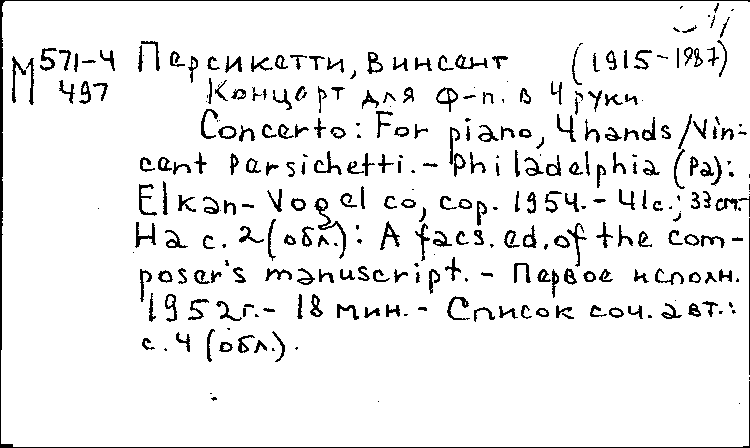 М 571-4 Персикетти, Винсент (1915-1987)
497 Концерт для ф-п. в 4 руки
Concerto: For piano, 4 hands / Vin-
cent Persichetti. - Philadelphia (Pa):
Elkan-Vogel co, cop. 1954. - 41 с.; 33 см. -
На с. 2 (обл.): A facs. ed. of the com-
poser's manuscript. - Первое исполн.
1952 г. - 18 мин. - Список соч. авт.:
с. 4 (обл.).